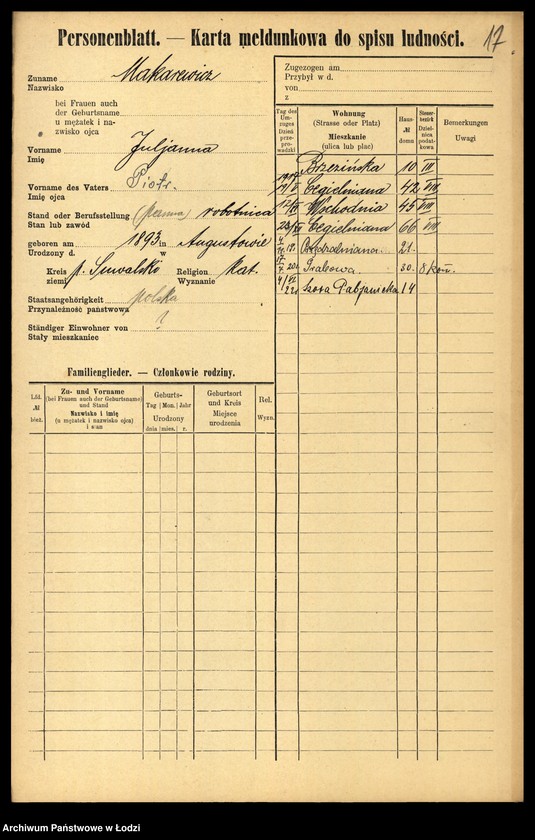 Personenblatt. — Karta meldunkowa do spisu ludności.
17
Zuname Makarewicz
Nazwisko
bei Frauen auch
der Geburtsname
u mężatek i na-
zwisko ojca
Vorname Juljanna
Imię
Vorname des Vaters Piotr.
Imię ojca
Stand oder Berufsstellung (panna) robotnica
Stan lub zawód
geboren am 1893 in Augustowie
Urodzony d. w
Kreis p. Suwalsko Religion kat.
ziemi Wyznanie
Staatsangehörigkeit polska
Przynależność państwowa
Ständiger Einwohner von ?
Stały mieszkaniec
Familienglieder. — Członkowie rodziny.
Lfd. № bież.
Zu- und Vorname
(bei Frauen auch der Geburtsname)
und Stand
Nazwisko i imię
(u mężatek i nazwisko ojca)
i stan
Geburts-
Tag Mon. Jahr
Urodzony
dnia mies. r.
Geburtsort
und Kreis
Miejsce
urodzenia
Rel.
Wyzn.
Zugezogen am
Przybył w d.
von
z
Tag des
Um-
zuges
Dzień
prze-
prowadzki
Wohnung
(Strasse oder Platz)
Mieszkanie
(ulica lub plac)
Haus-
№
domu
Steuer-
bezirk
Dziel-
nica
podat-
kowa
Bemerkungen
Uwagi
Brzezińska 10 III
Cegielniana 42 VIII
Wschodnia 45 VIII
Cegielniana 66 VIII
21.
Grabowa. 30.
Pabjanicka 14
Archiwum Państwowe w Łodzi